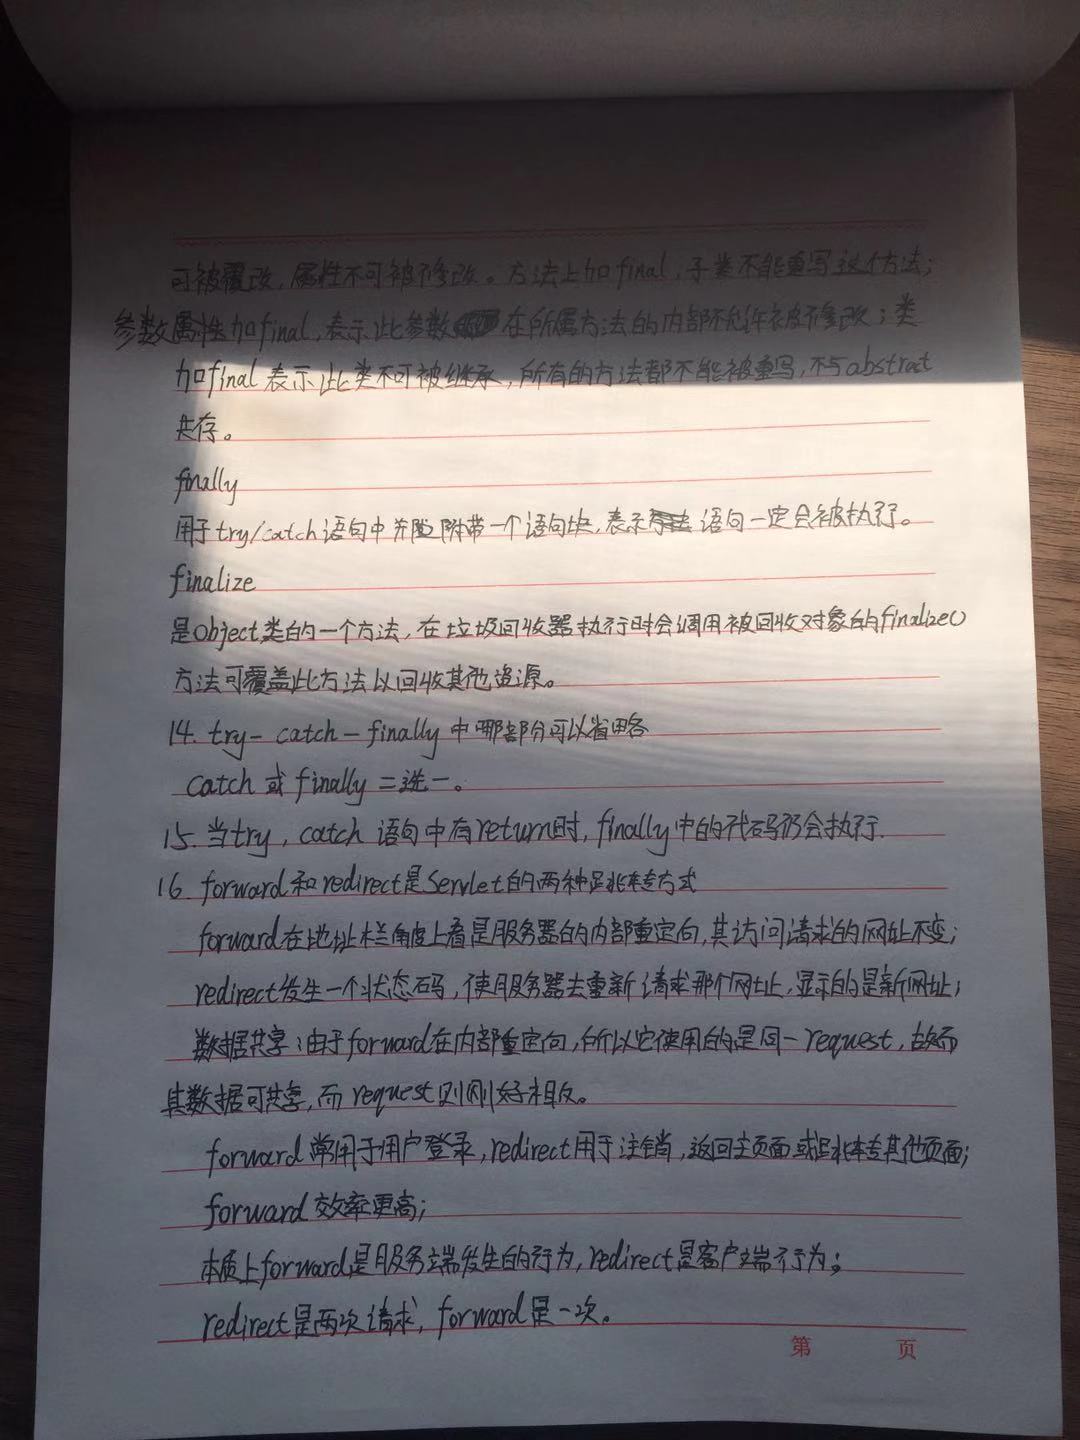 可被覆改，属性不可被修改。方法上加final，子类不能重写这个方法；
参数属性加final，表示此参数在所属方法的内部不允许被修改；类
加final表示此类不可被继承，所有的方法都不能被重写，不与abstract
共存。
finally
用于try/catch语句中并附带一个语句块，表示语句一定会被执行。
finalize
是Object类的一个方法，在垃圾回收器执行时会调用被回收对象的finalize()
方法可覆盖此方法以回收其他资源。
14. try-catch-finally中哪部分可以省略
catch或finally二选一。
15. 当try，catch语句中有return时，finally中的代码仍会执行.
16. forward和redirect是Servlet的两种跳转方式
forward在地址栏角度上看是服务器的内部重定向，其访问请求的网址不变；
redirect发生一个状态码，使服务器去重新请求那个网址，显示的是新网址；
数据共享：由于forward在内部重定向，所以它使用的是同一request，故而
其数据可共享，而request则刚好相反。
forward常用于用户登录，redirect用于注销，返回主页面或跳转其他页面；
forward效率更高；
本质上forward是服务端发生的行为，redirect是客户端行为；
redirect是两次请求，forward是一次。
第 页